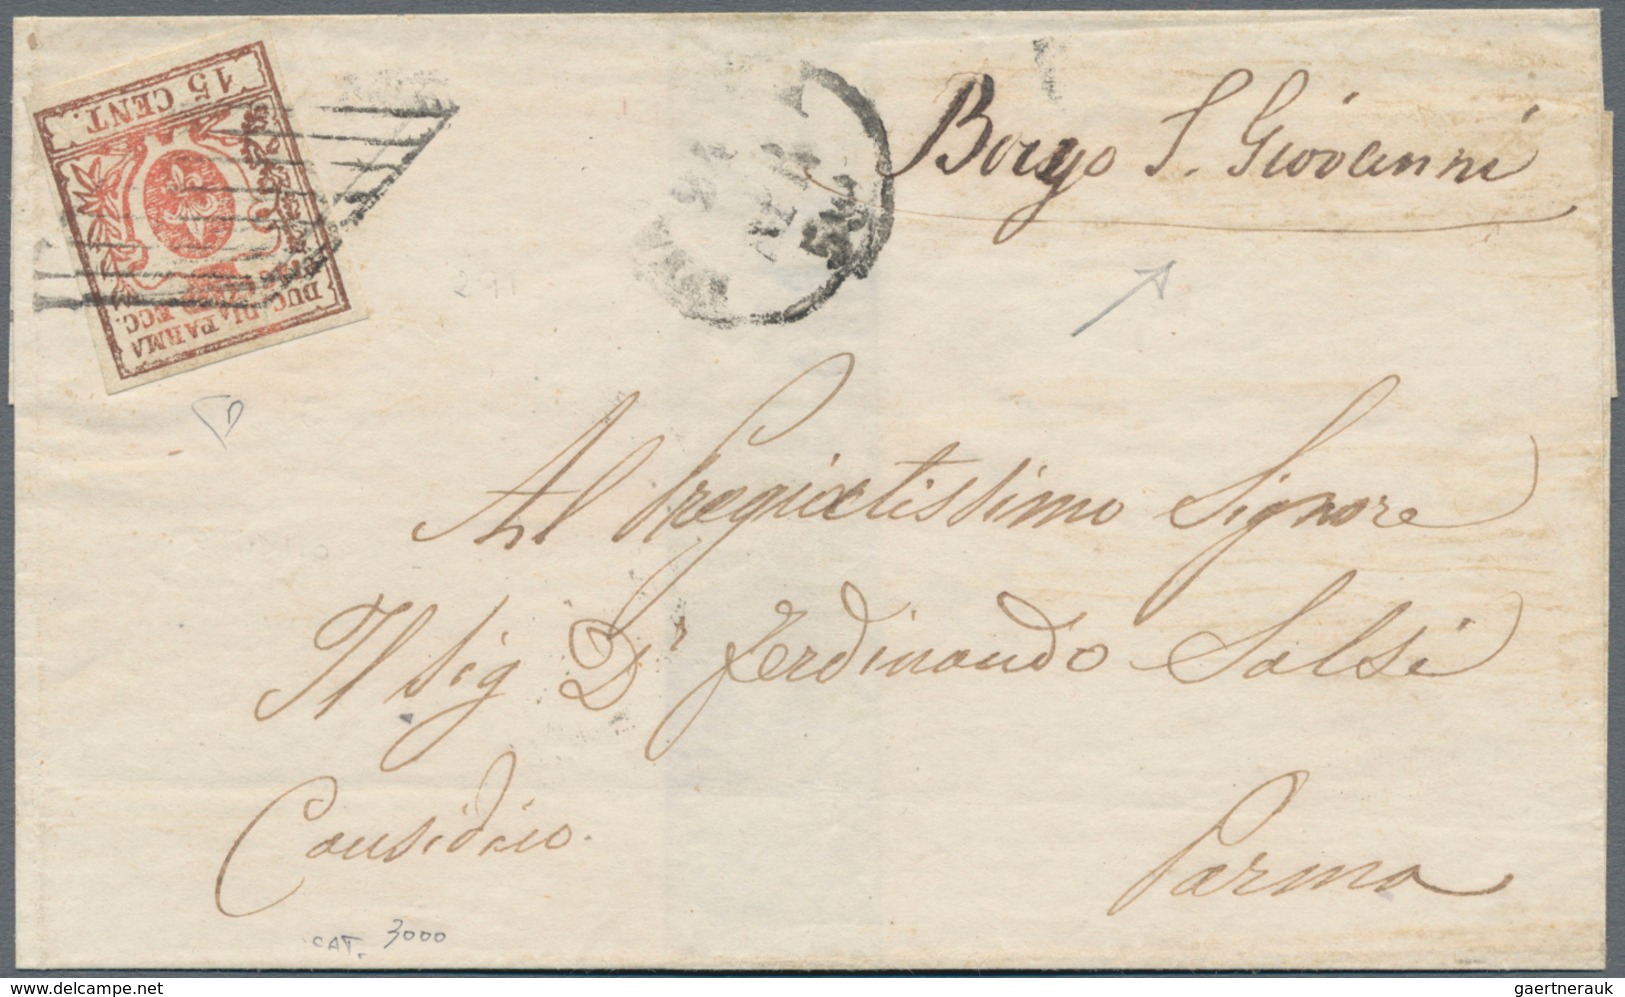 15 CENT.
DUC. DI PARMA
ECC.
Borgo S. Giovanni
Al Pregiatissimo Signore
Il Sig Dr Ferdinando Salsi
Causidico.
Parma
CAT. 3000
© the-saleroom.com/gaertnerauk